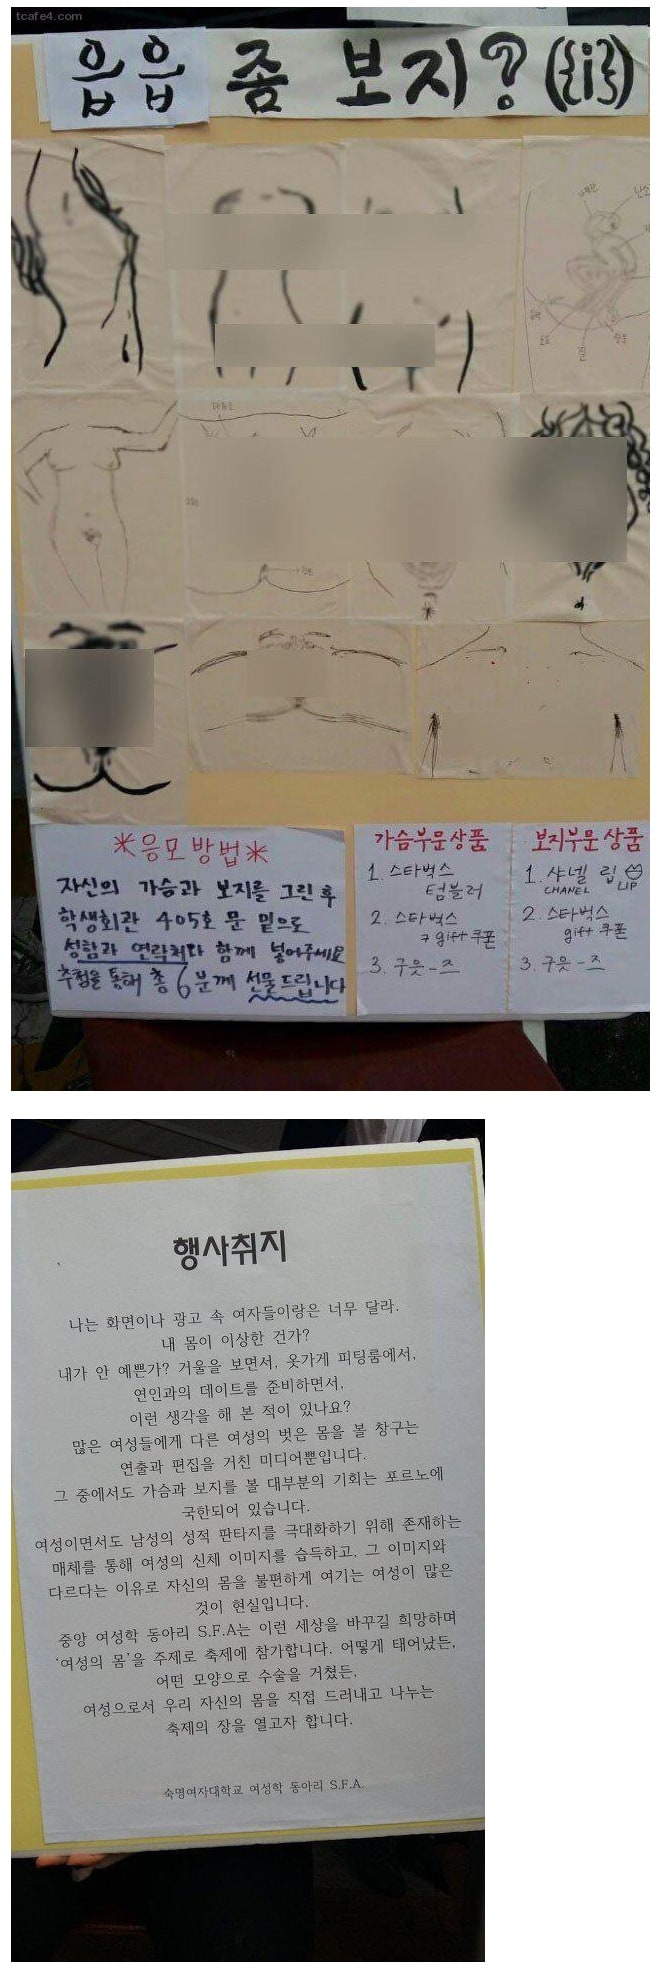 tcafe4.com
읍읍 좀 보지? ({i})
✳응모방법✳
자신의 가슴과 보지를 그린 후
학생회관 405호 문 밑으로
성함과 연락처와 함께 넣어주세요
추첨을 통해 총 6분께 선물드립니다
가슴부문상품
1. 스타벅스
텀블러
2. 스타벅스
gift 쿠폰
3. 구읏-즈
보지부문상품
1. 샤넬 립
CHANEL LIP
2. 스타벅스
gift 쿠폰
3. 구읏-즈
행사취지
나는 화면이나 광고 속 여자들이랑은 너무 달라.
내 몸이 이상한 건가?
내가 안 예쁜가? 거울을 보면서, 옷가게 피팅룸에서,
연인과의 데이트를 준비하면서,
이런 생각을 해 본 적이 있나요?
많은 여성들에게 다른 여성의 벗은 몸을 볼 창구는
연출과 편집을 거친 미디어뿐입니다.
그 중에서도 가슴과 보지를 볼 대부분의 기회는 포르노에
국한되어 있습니다.
여성이면서도 남성의 성적 판타지를 극대화하기 위해 존재하는
매체를 통해 여성의 신체 이미지를 습득하고, 그 이미지와
다르다는 이유로 자신의 몸을 불편하게 여기는 여성이 많은
것이 현실입니다.
중앙 여성학 동아리 S.F.A는 이런 세상을 바꾸길 희망하며
'여성의 몸'을 주제로 축제에 참가합니다. 어떻게 태어났든,
어떤 모양으로 수술을 거쳤든,
여성으로서 우리 자신의 몸을 직접 드러내고 나누는
축제의 장을 열고자 합니다.
숙명여자대학교 여성학 동아리 S.F.A.